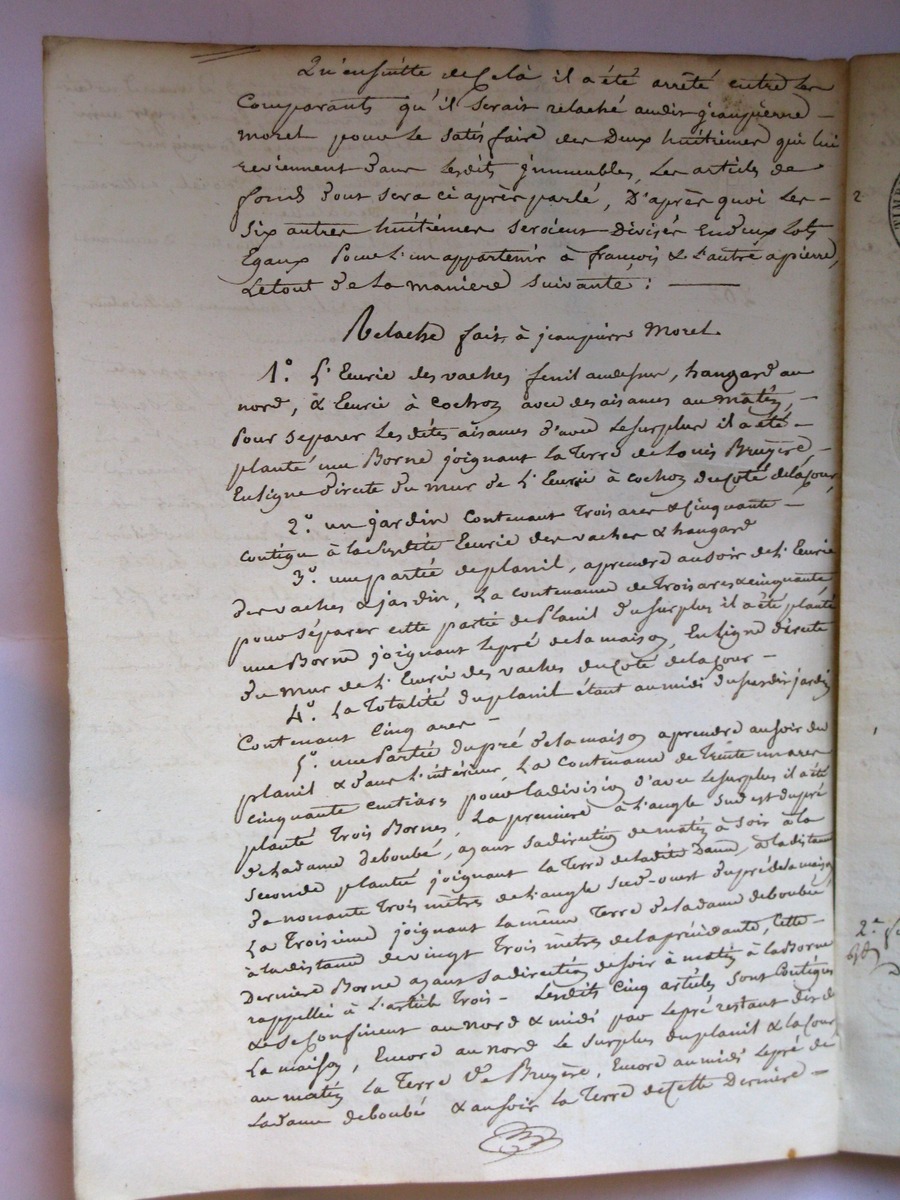 Qu'ensuitte de Celà il a été arrêté entre les
Comparants qu'il serait relaché audit jeanpierre -
moret pour le satisfaire des Deux huitiemes qui lui
reviennent dans lesdits jmmeubles, Les articles de
fonds dont sera ci après parlé, D'après quoi les -
six autres huitiémes seroient divisés En deux lots
Egaux pour l'un appartenir à françois & l'autre a pierre,
Le tout de la maniere suivante : ——
Relache fait à jeanpierre Moret.
1.° L'Ecurie des vaches fenil audessus, hangard au
nord, & Ecurie à Cochon avec des aisances au matin, -
Pour separer lesdites aisances d'avec le surplus il a été -
planté une Borne joignant la Terre de Louis Bruyère, -
En ligne directe du mur de l'Ecurie à cochon du Coté de la Cour
2.° un jardin Contenant Trois ares & Cinquante -
contigu à la susdite Ecurie des vaches & hangard
3.° une partie de planil, a prendre au soir de l'Ecurie
des vaches & jardin, La contenance de Trois ares & cinquante
pour séparer cette partie de Planil du surplus il a été planté
une Borne joignant le pré de la maison, En ligne directe
du mur de l'Ecurie des vaches du Coté de la Cour -
4.° La Totalité du planil étant au midi du susdit jardin
Contenant Cinq ares -
5.° une Partie du pré de la maison a prendre au soir du
planil & dans l'intérieur, La Contenance de Trente un ares
cinquante centiares pour la division d'avec le surplus il a été
planté Trois Bornes, La premiere à l'angle sud est du pré
de la dame deboubé, ayant sa direction de matin à soir à la
seconde plantée joignant la Terre de ladite Dame, à la distance
de nonante Trois mètres de l'angle sud-ouest du pré de la maison
La Troisieme joignant la même Terre de la dame deboubé
à la distance de vingt Trois mètres de la précédante, Cette -
Derniere Borne ayant sa direction de soir à matin à la Borne
rappellée à l'article Trois - Lesdits Cinq articles sont Contigus
& se Confinent au nord & midi par le pré restant dit de
La maison, Encore au nord le surplus du planil & la Cour
au matin la Terre de Bruyère, Encore au midi le pré de
la dame deboubé & au soir la Terre de Cette Derniere -
2
2.e